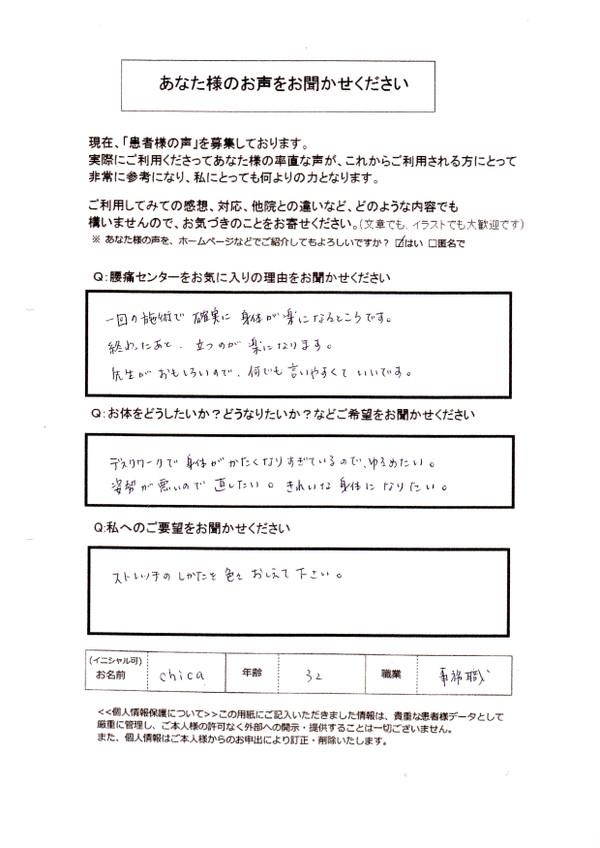 あなた様のお声をお聞かせください
現在、「患者様の声」を募集しております。
実際にご利用くださってあなた様の率直な声が、これからご利用される方にとって
非常に参考になり、私にとっても何よりの力となります。
ご利用してみての感想、対応、他院との違いなど、どのような内容でも
構いませんので、お気づきのことをお寄せください。(文章でも、イラストでも大歓迎です)
※ あなた様の声を、ホームページなどでご紹介してもよろしいですか? ☑はい □匿名で
Q:腰痛センターをお気に入りの理由をお聞かせください
一回の施術で 確実に 身体が楽になるところです。
終わったあと、立つのが楽になります。
先生がおもしろいので、何でも言いやすくていいです。
Q:お体をどうしたいか?どうなりたいか?などご希望をお聞かせください
デスクワークで身体がかたくなりすぎているので、ゆるめたい。
姿勢が悪いので直したい。きれいな身体になりたい。
Q:私へのご要望をお聞かせください
ストレッチのしかたを色々おしえて下さい。
(イニシャル可)
お名前 chica 年齢 32 職業 事務職
<<個人情報保護について>>この用紙にご記入いただきました情報は、貴重な患者様データとして
厳重に管理し、ご本人様の許可なく外部への開示・提供することは一切ございません。
また、個人情報はご本人様からのお申出により訂正・削除いたします。